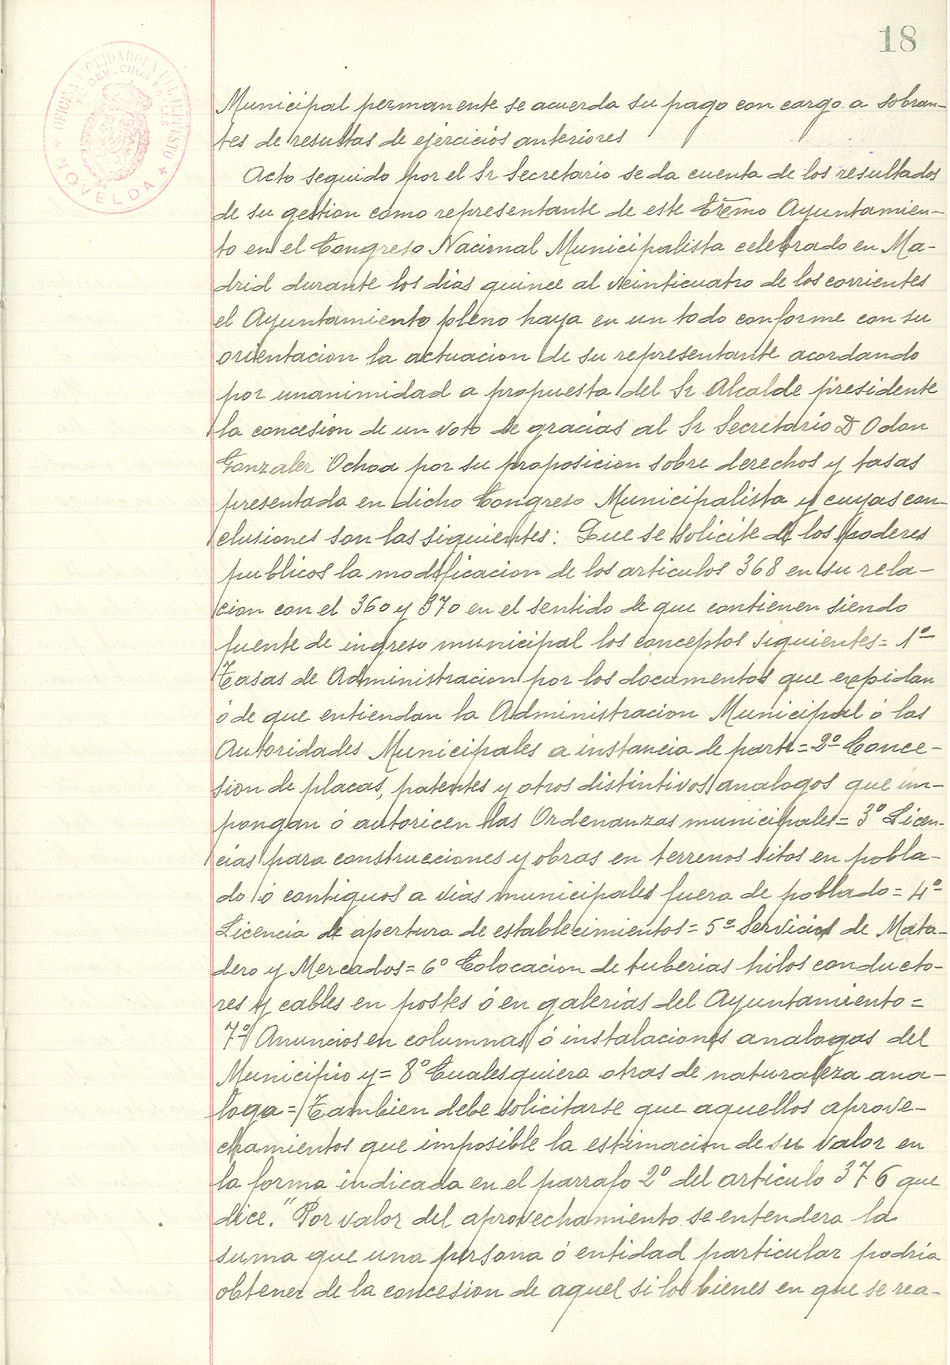 18
OFICINA LIQUIDADORA DEL IMPUESTO
DE DERECHOS REALES
NOVELDA
Municipal permanente se acuerda su pago con cargo a sobran-
tes de resultas de ejercicios anteriores
Acto seguido por el Sr Secretario se da cuenta de los resultados
de su gestion como representante de este Exmo Ayuntamien-
to en el Congreso Nacional Municipalista celebrado en Ma-
drid durante los dias quince al veinticuatro de los corrientes
el Ayuntamiento pleno haya en un todo conforme con su
orientacion la actuacion de su representante acordando
por unanimidad a propuesta del Sr Alcalde presidente
la concesion de un voto de gracias al Sr Secretario D Odon
Gonzalez Ochoa por su proposicion sobre derechos y tasas
presentada en dicho Congreso Municipalista y cuyas con-
clusiones son las siguientes: Que se solicite de los poderes
publicos la modificacion de los articulos 368 en su rela-
cion con el 360 y 370 en el sentido de que contienen siendo
fuente de ingreso municipal los conceptos siguientes= 1º
Tasas de Administracion por los documentos que expidan
ó de que entiendan la Administracion Municipal ó las
Autoridades Municipales a instancia de parte= 2º Conce-
sion de placas, patentes y otros distintivos analogos que im-
pongan ó autoricen las Ordenanzas municipales= 3º Licen-
cias para construcciones y obras en terrenos sitos en pobla-
do ó contiguos a vias municipales fuera de poblado= 4º
Licencia de apertura de establecimientos= 5º Servicios de Mata-
dero y Mercados= 6º Colocacion de tuberias hilos conducto-
res y cables en postes ó en galerias del Ayuntamiento=
7º Anuncios en columnas ó instalaciones analogas del
Municipio y= 8º Cualesquiera otras de naturaleza ana-
loga= Tambien debe solicitarse que aquellos aprove-
chamientos que imposible la estimacion de su valor en
la forma indicada en el parrafo 2º del articulo 376 que
dice." Por valor del aprovechamiento se entendera la
suma que una persona ó entidad particular podria
obtener de la concesion de aquel si los bienes en que se rea-